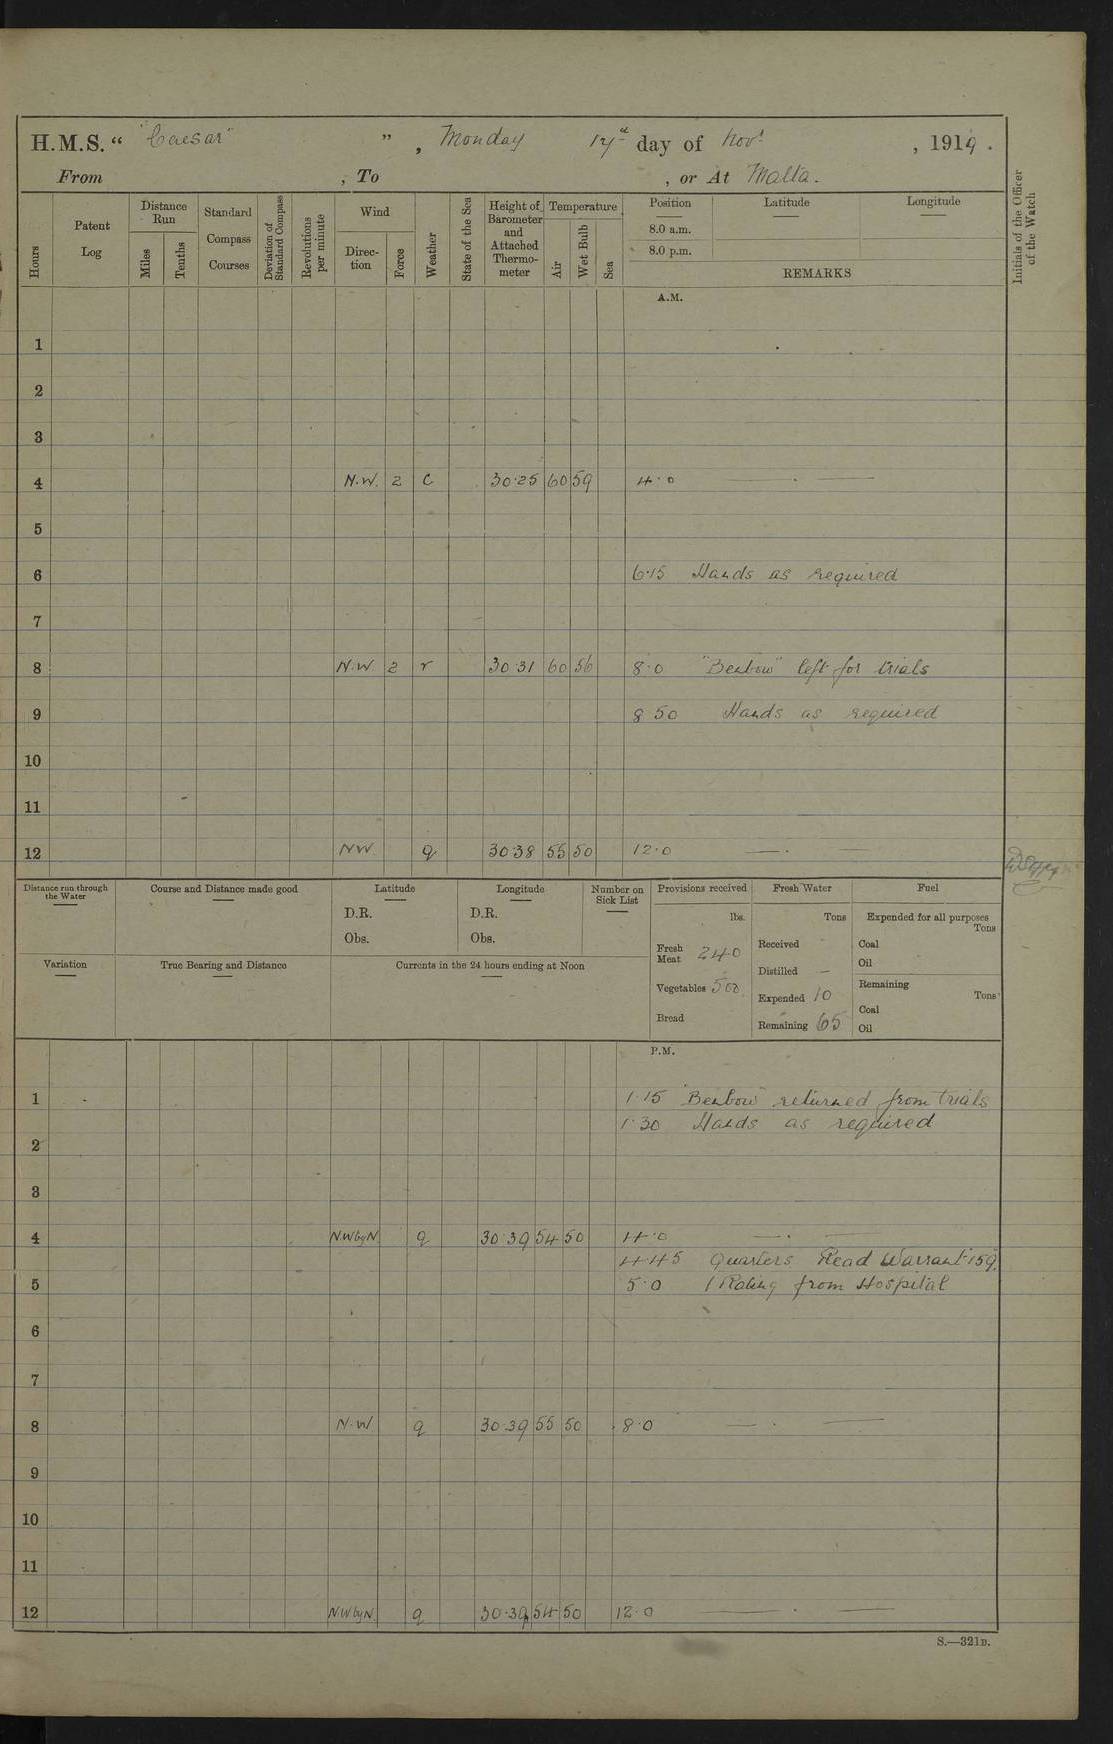 H.M.S. “ "Caesar" ”, Monday 17th day of Novr, 1919.
From , To , or At Malta.
Hours
Patent Log
Distance Run
Miles
Tenths
Standard Compass Courses
Deviation of Standard Compass
Revolutions per minute
Wind
Direction
Force
Weather
State of the Sea
Height of Barometer and Attached Thermometer
Temperature
Air
Wet Bulb
Sea
Position
Latitude
Longitude
8.0 a.m.
8.0 p.m.
REMARKS
Initials of the Officer of the Watch
A.M.
1
2
3
4 N.W. 2 c 30·25 60 59 4·0 — . —
5
6 6·15 Hands as required
7
8 N.W. 2 r 30·31 60 56 8·0 "Benbow" left for trials
9 8 50 Hands as required
10
11
12 NW q 30·38 55 50 12·0 — . —
Distance run through the Water
Course and Distance made good
Latitude
D.R.
Obs.
Longitude
D.R.
Obs.
Number on Sick List
Provisions received
lbs.
Fresh Meat 240
Vegetables 500
Bread
Fresh Water
Tons
Received
Distilled —
Expended 10
Remaining 65
Fuel
Expended for all purposes
Tons
Coal
Oil
Remaining
Tons
Coal
Oil
Variation
True Bearing and Distance
Currents in the 24 hours ending at Noon
P.M.
1 1·15 "Benbow" returned from trials
1·30 Hands as required
2
3
4 N.W by N q 30·39 54 50 4·0 — . —
4·45 Quarters Read Warrant 159.
5 5·0 1 Rating from Hospital
6
7
8 N.W q 30·39 55 50 8·0 — . —
9
10
11
12 N.W by N. q 30·39 54 50 12·0 — . —
S.—321B.